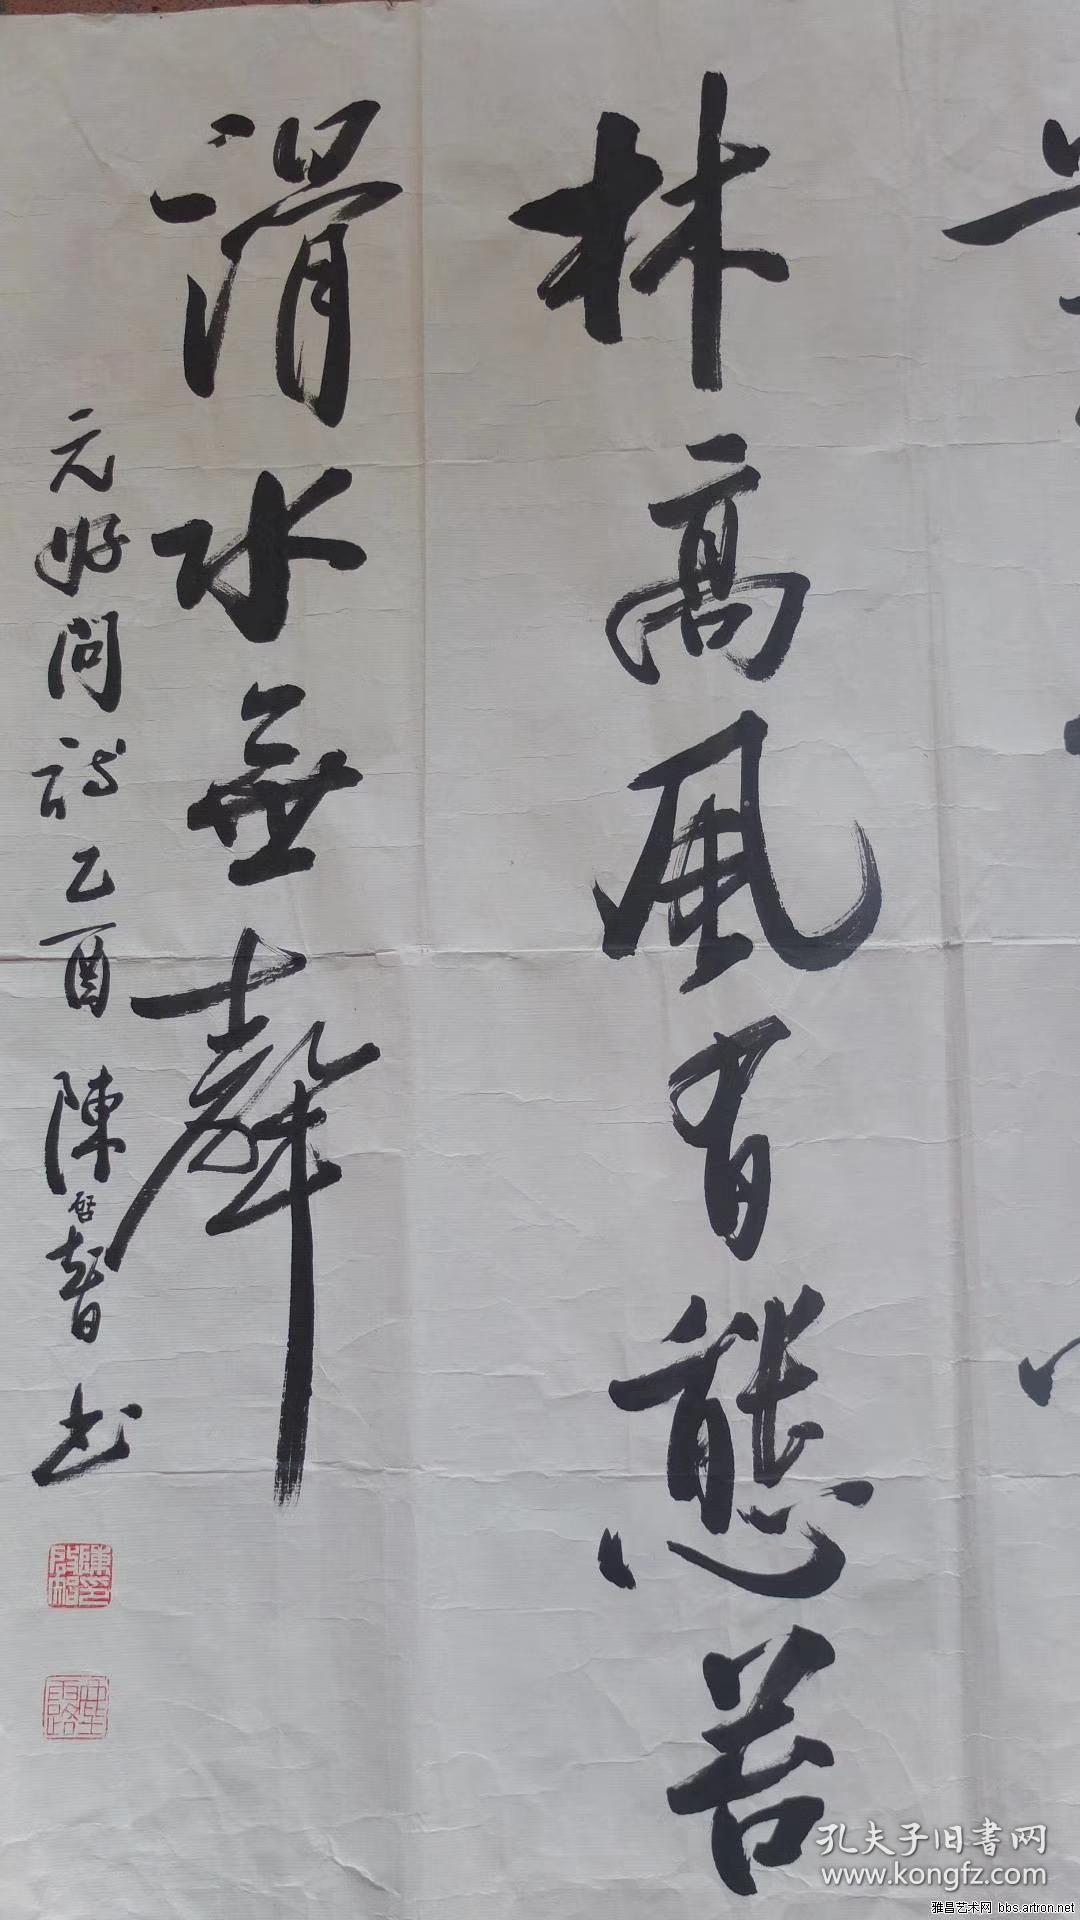 林高風有態苔
滑水無聲
元好問詩乙酉陳啓智书
陳啓智
孔夫子旧書网
www.kongfz.com
雅昌艺术网 bbs.artron.net